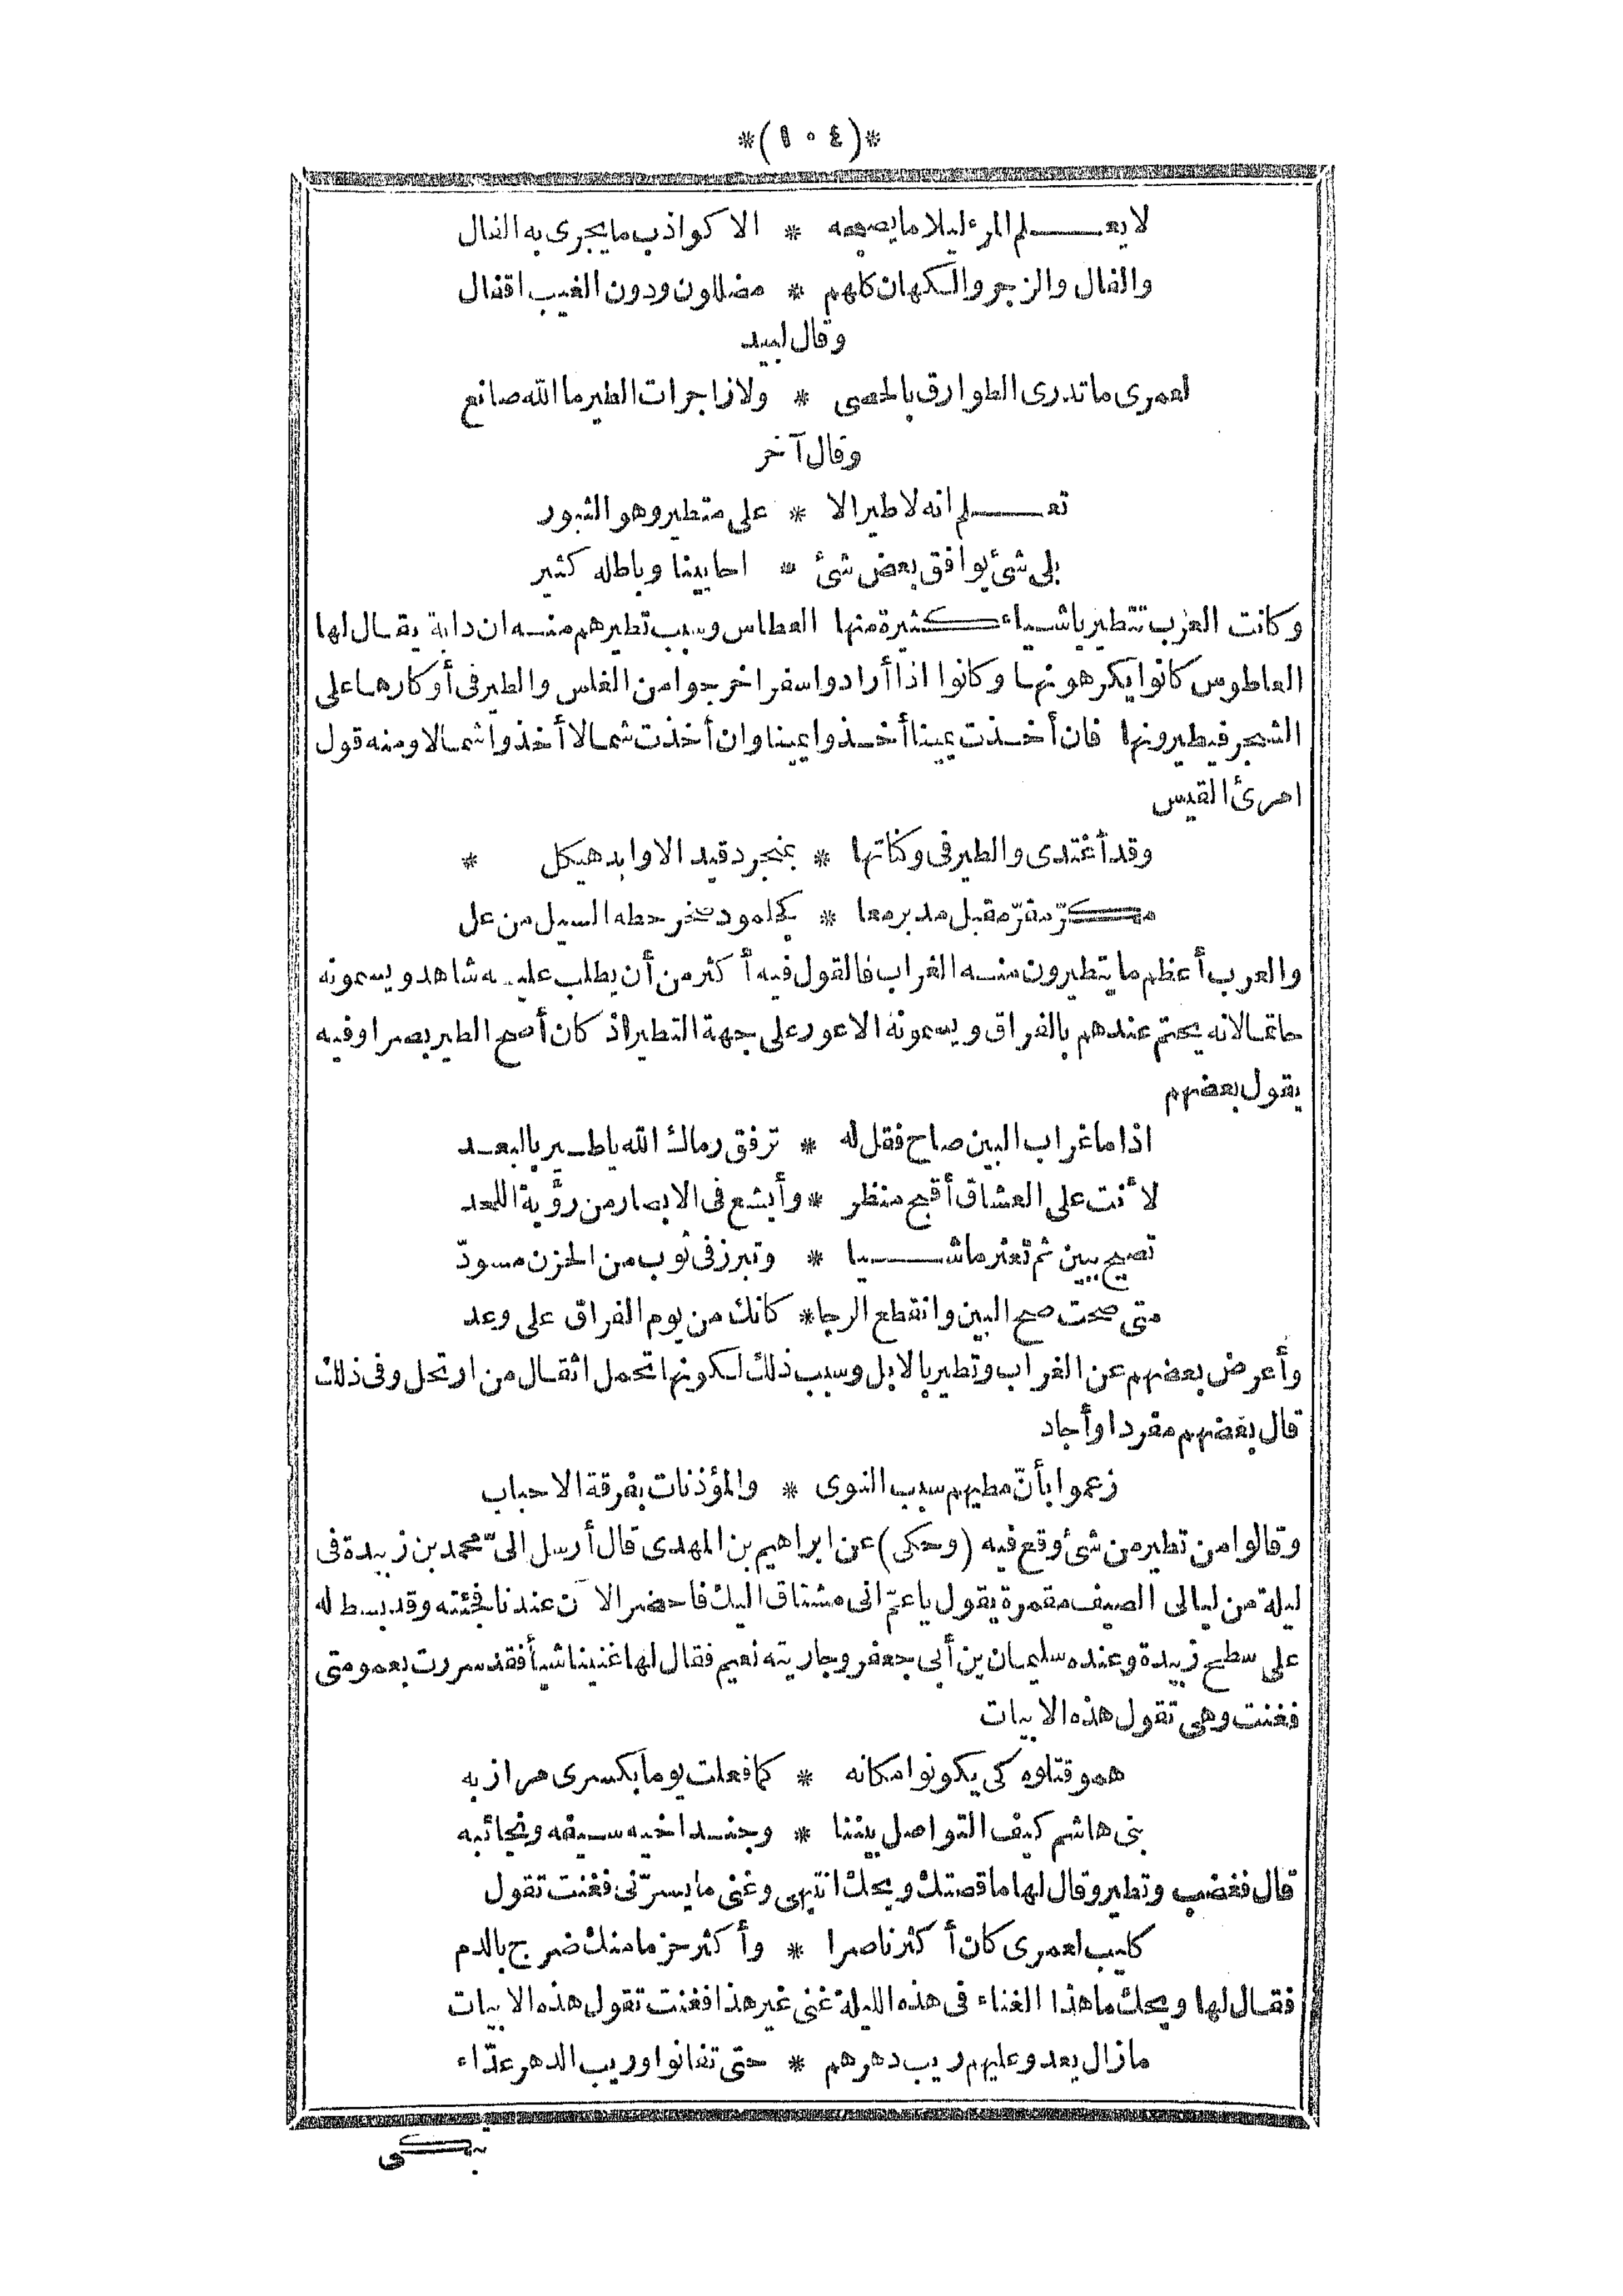 *(١٠٤)*
لا يعـــلم المرء ليلا ما يصبحه * الا كواذب ما يجرى به الفال
والفال والزجر والكهان كلهم * مضللون ودون الغيب اقفال
وقال لبيد
لعمرى ما تدرى الطوارق بالحصى * ولا زاجرات الطير ما الله صانع
وقال آخر
تعـــلم انه لا طير الا * على متطير وهو الثبور
بلى شئ يوافق بعض شئ * احايينا وباطله كثير
وكانت العرب تتطير باشياء كثيرة منها العطاس وسبب تطيرهم منه ان دابة يقال لها
العاطوس كانوا يكرهونها وكانوا اذا أرادوا سفرا خرجوا من الغلس والطير فى أوكارها على
الشجر فيطيرونها فان أخذت يمينا أخذوا يمينا وان أخذت شمالا أخذوا شمالا ومنه قول
امرئ القيس
وقد أغتدى والطير فى وكناتها * بمنجرد قيد الاوابد هيكل *
مكرّ مفرّ مقبل مدبر معا * كجلمود صخر حطه السيل من عل
والعرب أعظم ما يتطيرون منه الغراب فالقول فيه أكثر من أن يطلب عليه شاهد ويسمونه
حاتما لانه يحتم عندهم بالفراق ويسمونه الاعور على جهة التطير اذ كان أصح الطير بصرا وفيه
يقول بعضهم
اذا ما غراب البين صاح فقل له * ترفق رماك الله يا طير بالبعد
لأنت على العشاق أقبح منظر * وأبشع فى الابصار من رؤية اللحد
تصيح ببين ثم تعثر ماشـــيا * وتبرز فى ثوب من الحزن مسودّ
متى صحت صح البين وانقطع الرجا * كانك من يوم الفراق على وعد
وأعرض بعضهم عن الغراب وتطير بالابل وسبب ذلك لكونها تحمل اثقال من ارتحل وفى ذلك
قال بعضهم مفردا وأجاد
زعموا بأنّ مطيهم سبب النوى * والمؤذنات بفرقة الاحباب
وقالوا من تطير من شئ وقع فيه (وحكى) عن ابراهيم بن المهدى قال أرسل الىّ محمد بن زبيدة فى
ليلة من ليالى الصيف مقمرة يقول يا عمّ انى مشتاق اليك فاحضر الآن عندنا فجئته وقد بسط له
على سطح زبيدة وعنده سليمان بن أبى جعفر وجاريته نعيم فقال لها غنينا شيأ فقد سررت بعمومتى
فغنت وهى تقول هذه الابيات
همو قتلوه كى يكونوا مكانه * كما فعلت يوما بكسرى مرازبه
بنى هاشم كيف التواصل بيننا * وجند اخيه سيفه ونجائبه
قال فغضب وتطير وقال لها ما قصتك ويحك انتهى وغنى ما يسرّنى فغنت تقول
كليب لعمرى كان أكثر ناصرا * وأكثر حزما منك ضرج بالدم
فقال لها ويحك ما هذا الغناء فى هذه الليلة غنى غير هذا فغنت تقول هذه الابيات
ما زال يعدو عليهم ريب دهرهم * حتى تفانوا وريب الدهر عدّاء
تبكى